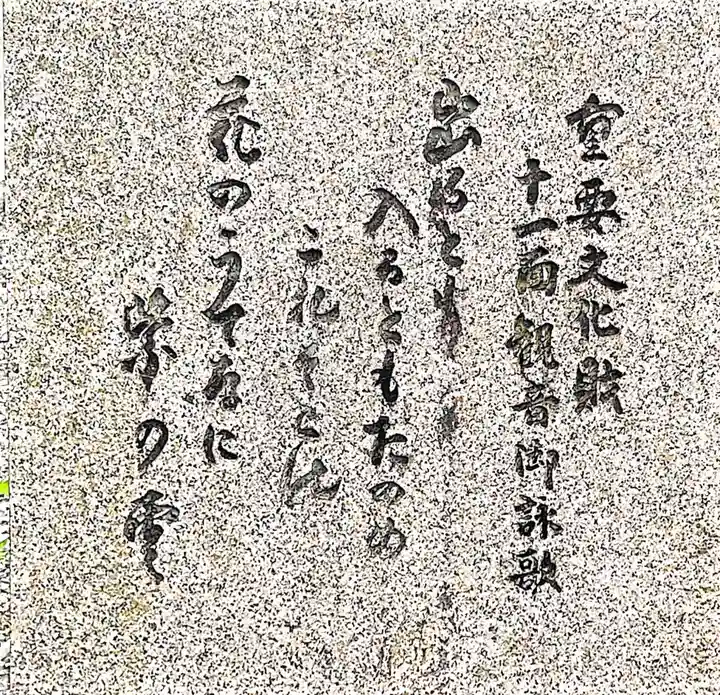 重要文化財
十一面観音御詠歌
出るとも
入るともたのめ
花のうてなに
紫の雲